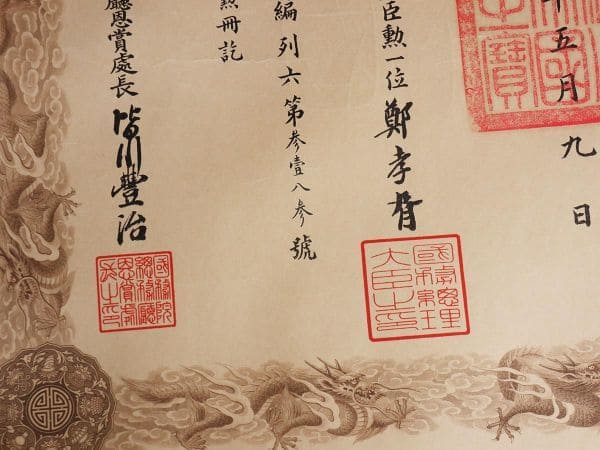 五月九日
之寶
臣勲一位鄭孝胥
大臣之印
編列六第参壹八参號
冊訖
廳恩賞處長皆川豐治
國務院
總務廳
恩賞處
長之印